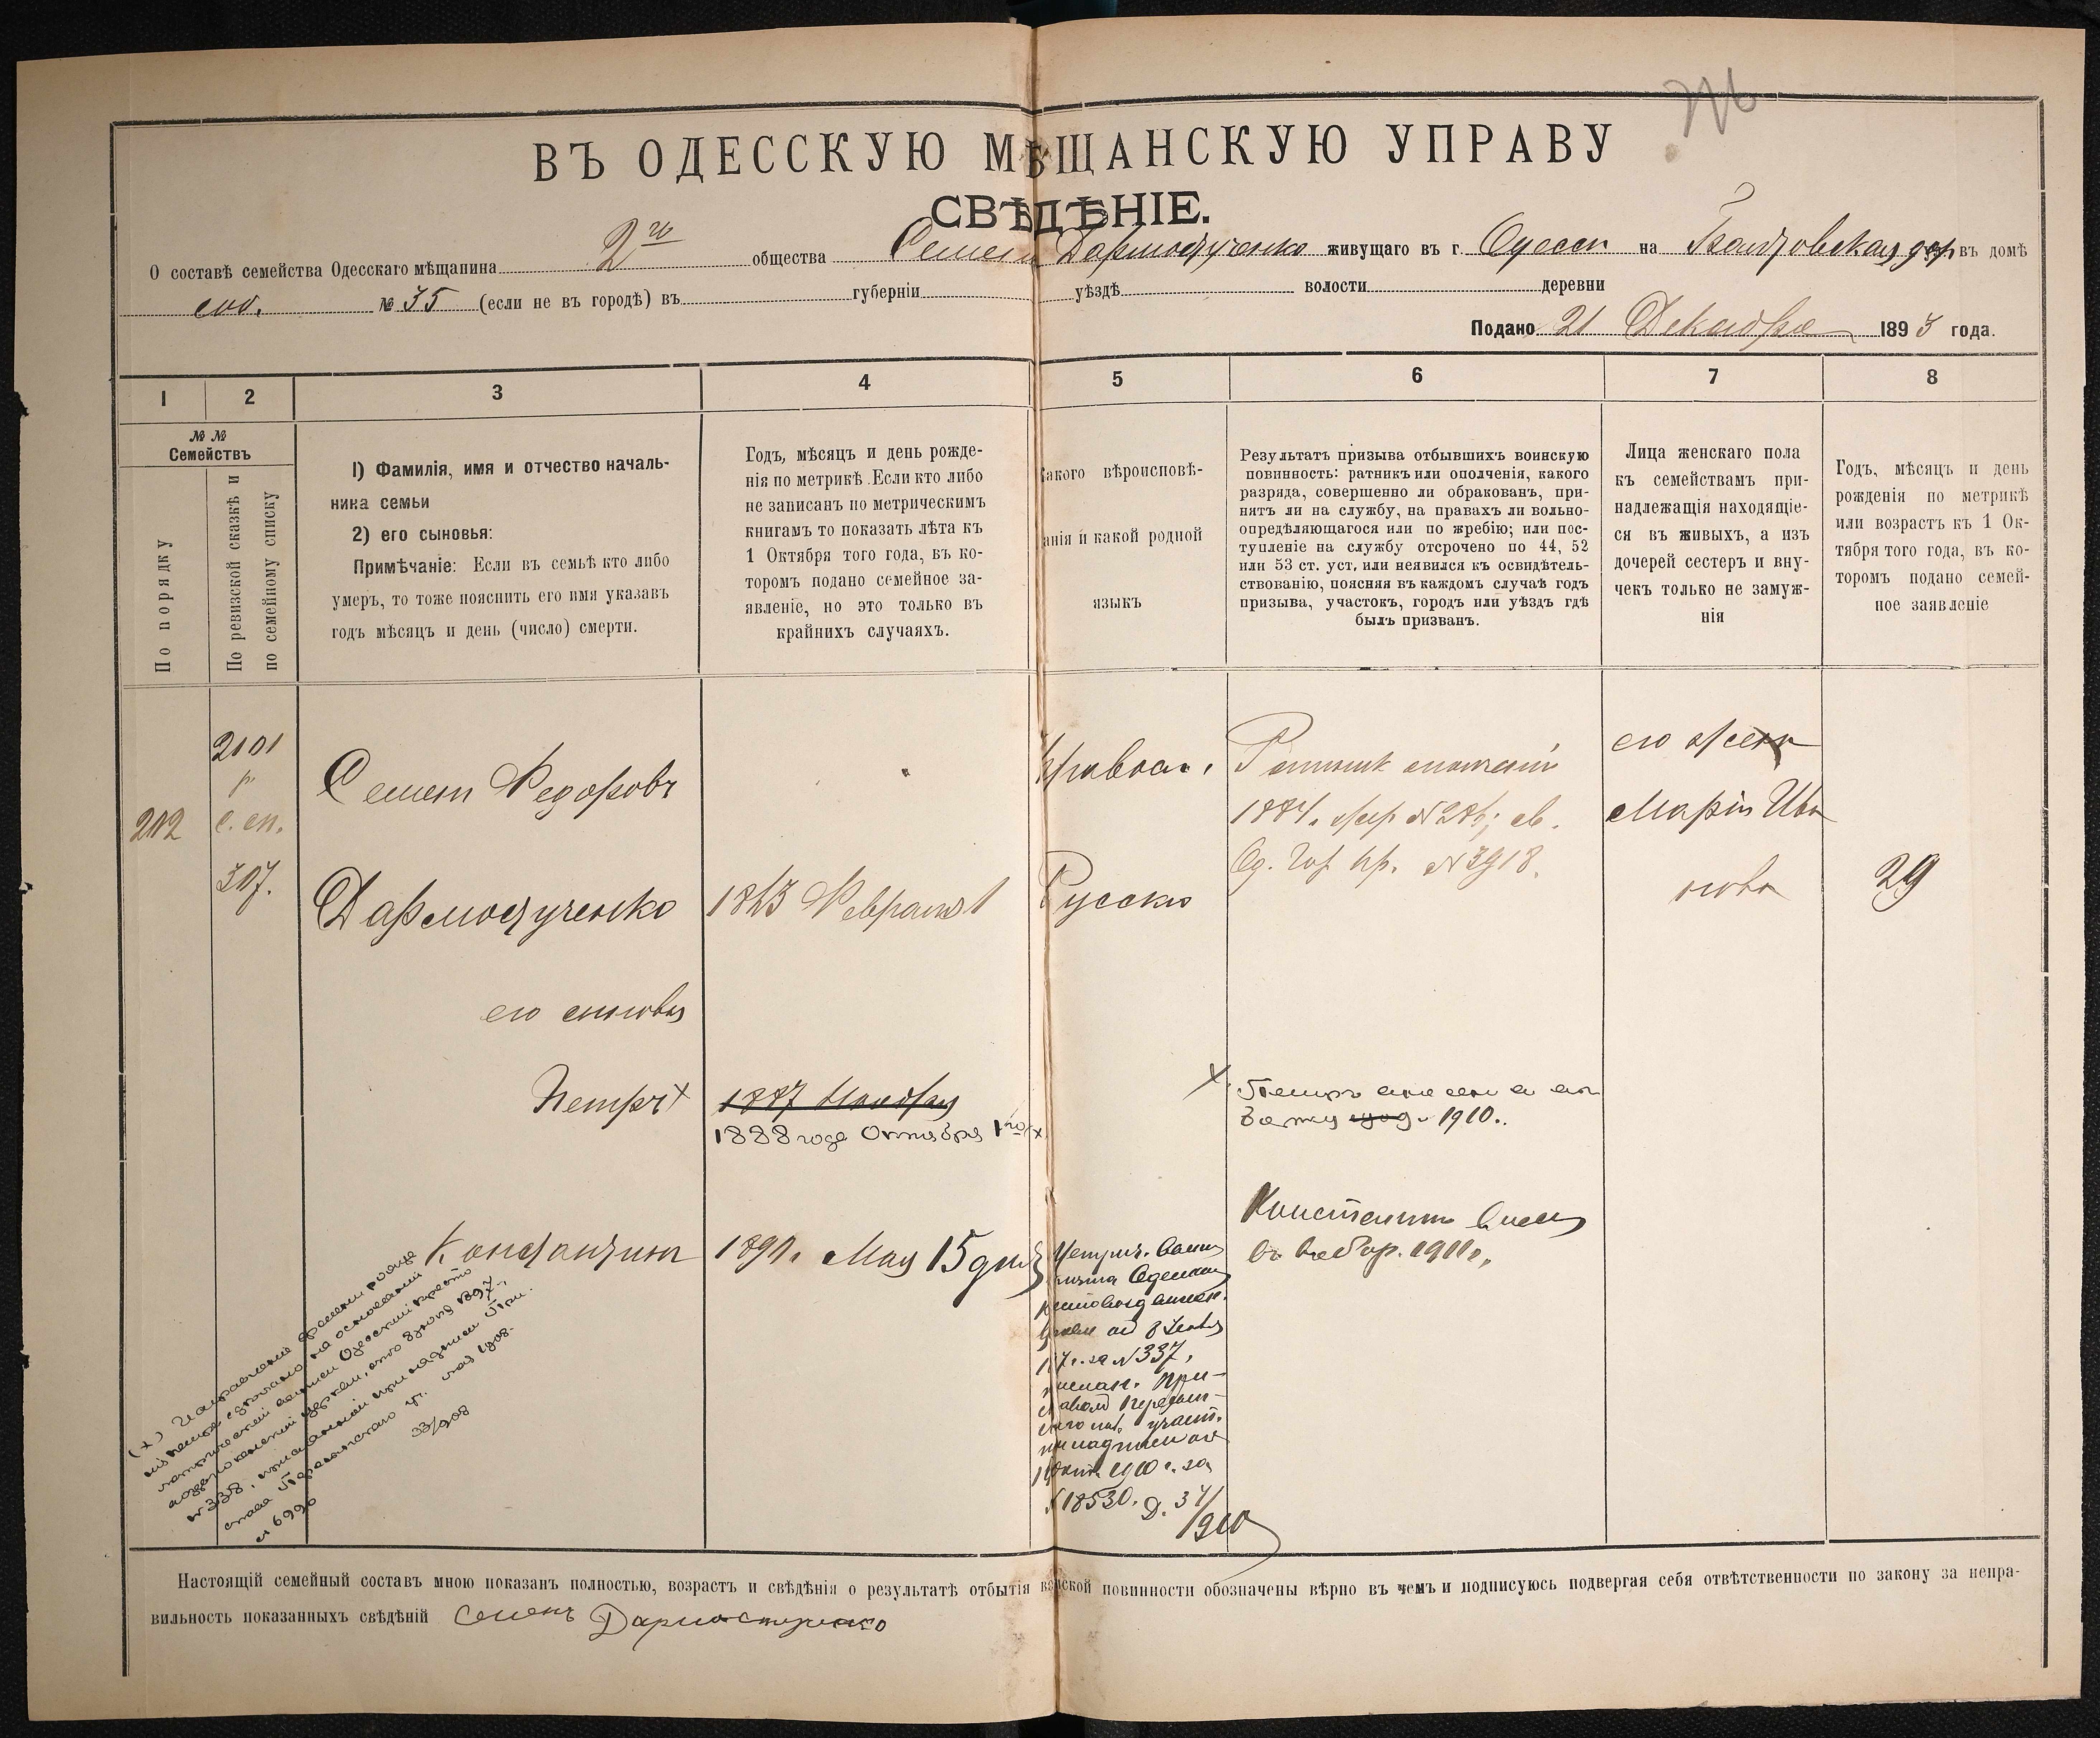 ВЪ ОДЕССКУЮ МѢЩАНСКУЮ УПРАВУ
СВѢДѢНІЕ.
О составѣ семейства Одесскаго мѣщанина 2го общества Семена Дармостученко живущаго въ г. Одессѣ на Балтовская дор въ домѣ
соб. № 35 (если не въ городѣ) въ губерніи уѣздѣ волости деревни
Подано 21 Декабря 1893 года.
1 2 3 4 5 6 7 8
№ №
Семействъ
По порядку
По ревизской сказкѣ и
по семейному списку
1) Фамилія, имя и отчество началь-
ника семьи
2) его сыновья:
Примѣчаніе: Если въ семьѣ кто либо
умеръ, то тоже пояснить его имя указавъ
годъ мѣсяцъ и день (число) смерти.
Годъ, мѣсяцъ и день рожде-
нія по метрикѣ. Если кто либо
не записанъ по метрическимъ
книгамъ то показать лѣта къ
1 Октября того года, въ ко-
торомъ подано семейное за-
явленіе, но это только въ
крайнихъ случаяхъ.
акого вѣроисповѣ-
анія и какой родной
языкъ
Результатъ призыва отбывшихъ воинскую
повинность: ратникъ или ополченія, какого
разряда, совершенно ли обракованъ, при-
нятъ ли на службу, на правахъ ли вольно-
опредѣляющагося или по жребію; или пос-
тупленіе на службу отсрочено по 44, 52
или 53 ст. уст, или неявился къ освидѣтель-
ствованію, поясняя въ каждомъ случаѣ годъ
призыва, участокъ, городъ или уѣздъ гдѣ
былъ призванъ.
Лица женскаго пола
къ семействамъ при-
надлежащія находящіе-
ся въ живыхъ, а изъ
дочерей сестеръ и вну-
чекъ только не замуж-
нія
Годъ, мѣсяцъ и день
рожденія по метрикѣ
или возрастъ къ 1 Ок-
тября того года, въ ко-
торомъ подано семей-
ное заявленіе
202
2101
р
с. сп.
307.
Семен Федоровъ
Дармостученко
1863 Февраля 1
Правосл.
Русский
Ратник ополчений
1884. жер № 286; св.
Од. Гор пр. № 3918.
его жена
Марія Ива
нова
29
его сыновья
Петръ х
1887 Ноября
1888 года Октября 1го (х
х. Петръ внесен в сп
1910.
Константин
1890. Мая 15 дня
Константин Внесен
в набор. 1911 г.
Метрич.
Одесской
кладбищен.
от 8
7 г. за № 337,
При-
участ.
1910 г. за
№ 18530. Д. 37/910
(х) Исправление времени рожде
сделано на основании
Одесской
церкви 1897 г.
№ 338,
Пересыпского уч. мая 1908.
№ 6990 33/908
Настоящій семейный составъ мною показанъ полностью, возрастъ и свѣдѣнія о результатѣ отбытія воинской повинности обозначены вѣрно въ чемъ и подписуюсь подвергая себя отвѣтственности по закону за непра-
вильность показанныхъ свѣдѣній Семенъ Дармостученко